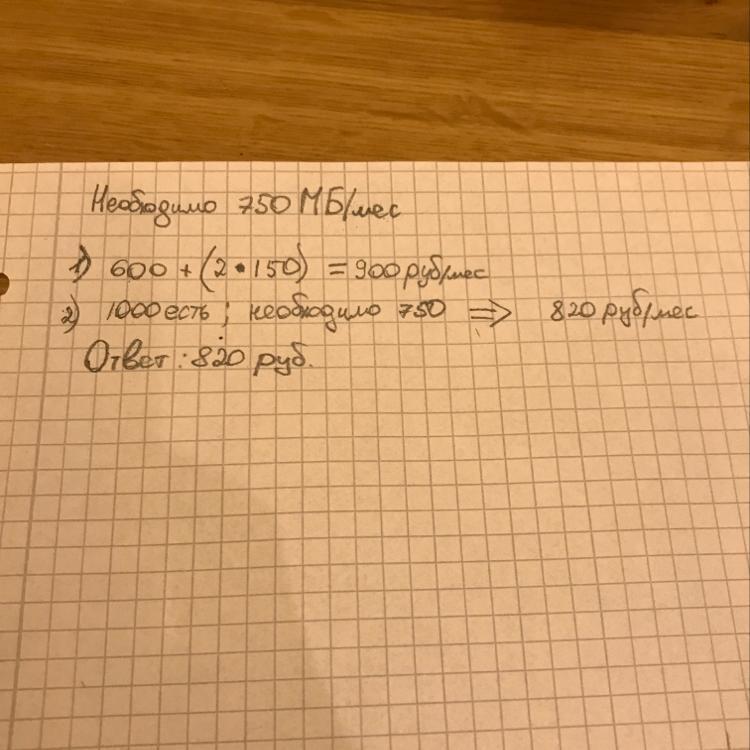 Необходимо 750 МБ/мес
1) 600 + (2 • 150) = 900 руб/мес
2) 1000 есть ; необходимо 750 ⇒ 820 руб/мес
Ответ : 820 руб.